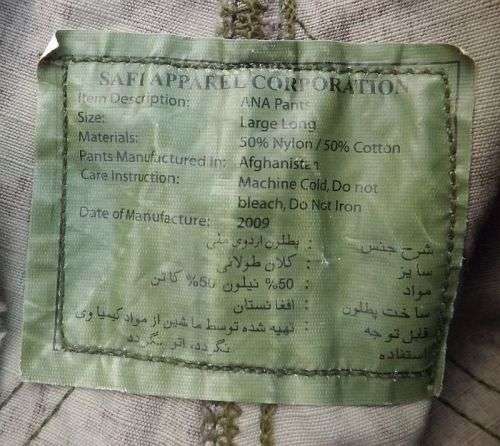 SAFI APPAREL CORPORATION
Item Description: ANA Pants
Size: Large Long
Materials: 50% Nylon / 50% Cotton
Pants Manufactured In: Afghanistan
Care Instruction: Machine Cold, Do not
bleach, Do Not Iron
Date of Manufacture: 2009
شرح جنس : پطلون اردوی ملی
سایز : کلان طولانی
مواد : 50% نیلون 50% کاتن
ساخت پطلون : افغانستان
قابل توجه : تهیه شده توسط ماشین از مواد کیمیاوی
استفاده نگردد، اتو نگردد